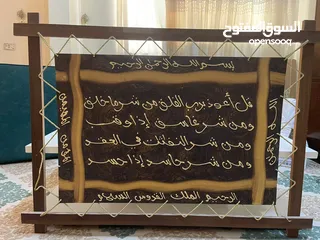 السوق المفتوح
opensooq.com
بسم الله الرحمن الرحيم
قل أعوذ برب الفلق من شر ما خلق
ومن شر غاسق إذا وقب
ومن شر النفثت في العقد
ومن شر حاسد إذا حسد
الرحيم الملك القدوس السلام